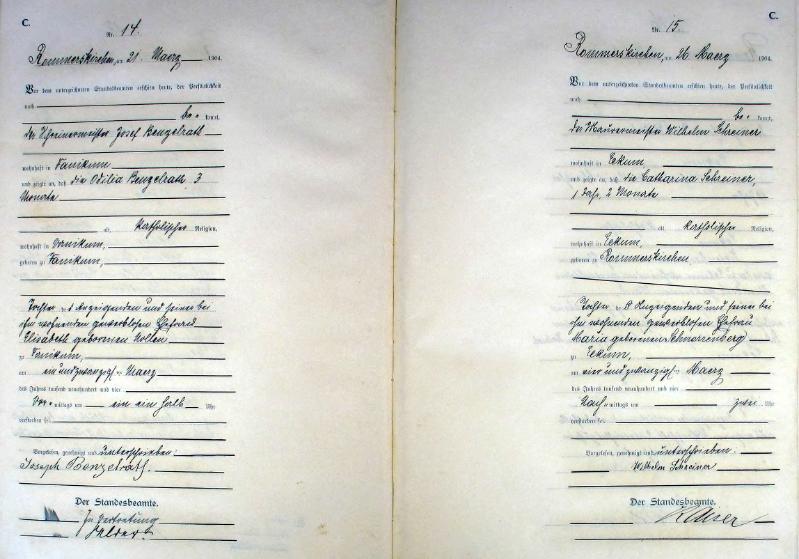 C.
Nr. 14.
Rommerskirchen, am 21. Maerz 1904.
Vor dem unterzeichneten Standesbeamten erschien heute, der Persönlichkeit
nach
be= kannt,
der Schreinermeister Josef Bengelrath
wohnhaft in Vanikum
und zeigte an, daß die Odilia Bengelrath, 3
Monate
alt, katholischer Religion,
wohnhaft in Vanikum,
geboren zu Vanikum,
Tochter des Anzeigenden und seiner bei
ihm wohnenden gewerblosen Ehefrau
Elisabeth geborenen Nollen
zu Vanikum,
am ein und zwanzigsten Maerz
des Jahres tausend neunhundert und vier
Vor= mittags um ein ein halb Uhr
verstorben sei.
Vorgelesen, genehmigt und unterschrieben:
Joseph Bengelrath.
Der Standesbeamte.
In Vertretung
C.
Nr. 15.
Rommerskirchen, am 26 Maerz 1904.
Vor dem unterzeichneten Standesbeamten erschien heute, der Persönlichkeit
nach
be= kannt,
der Maurermeister Wilhelm Schreiner
wohnhaft in Eckum
und zeigte an, daß die Catharina Schreiner,
1 Jahr, 2 Monate
alt, katholischer Religion,
wohnhaft in Eckum,
geboren zu Rommerskirchen,
Tochter des Anzeigenden und seiner bei
ihm wohnenden gewerblosen Ehefrau
Maria geborenen Schnorrenberg
zu Eckum,
am vier und zwanzigsten Maerz
des Jahres tausend neunhundert und vier
Nach= mittags um zwei Uhr
verstorben sei.
Vorgelesen, genehmigt und unterschrieben:
Wilhelm Schreiner
Der Standesbeamte.
Kaiser